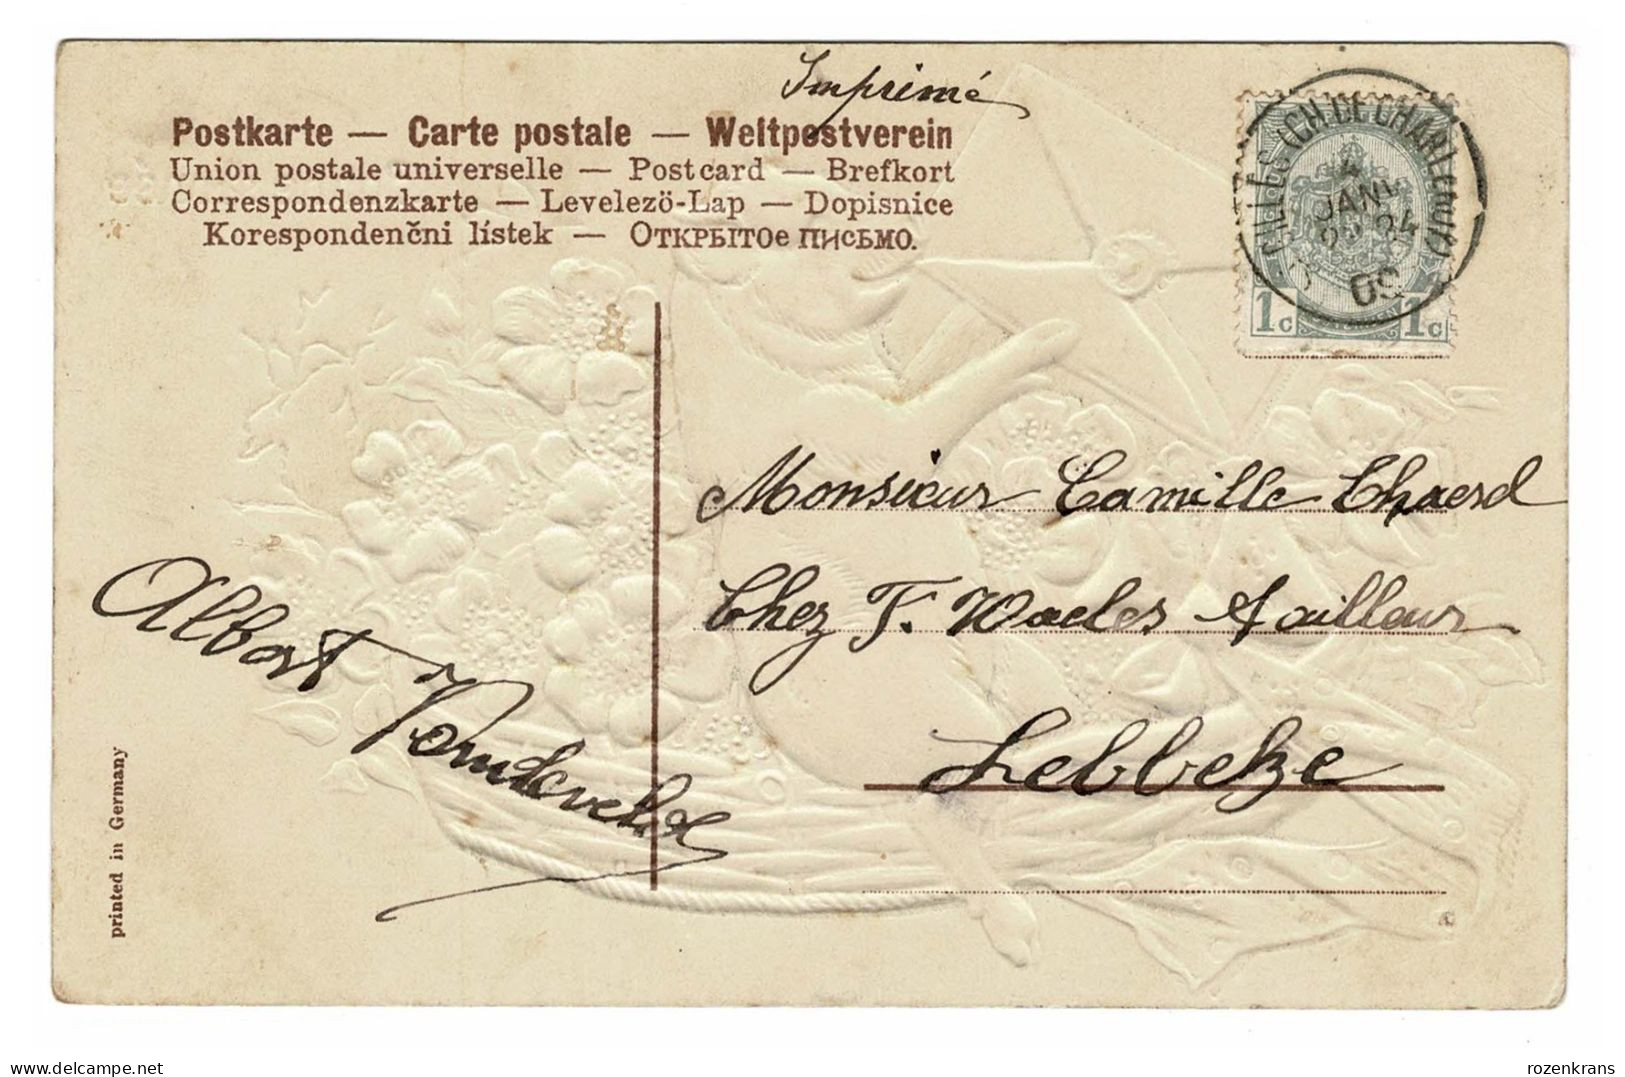 Imprimé
Postkarte — Carte postale — Weltpostverein
Union postale universelle — Postcard — Brefkort
Correspondenzkarte — Levelezö-Lap — Dopisnice
Korespondenčni lístek — Открытое письмо.
(CH. DE CHARLEROI)
4
JANV
1c 1c
Monsieur Camille
Chez F. Waeles Tailleur
Lebbeke
Albert Vandevelde
printed in Germany
delcampe.net
rozenkrans